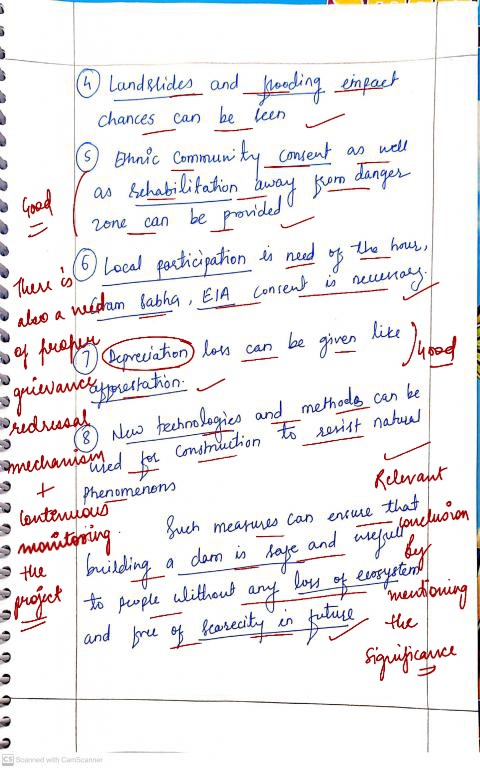 ④ Landslides and flooding empact
chances can be seen
⑤ Ethnic Community consent as well
as rehabilitation away from danger
zone can be provided
Good
⑥ Local participation is need of the hour,
Gram Sabha, EIA consent is necessary.
⑦ Depreciation loss can be given like
afforestation.
Good
⑧ New technologies and methods can be
used for construction to resist natural
phenomenons
There is
also a need
of proper
grievance
redressal
mechanism
+
continuous
monitoring
the
project
Such measures can ensure that
building a dam is safe and useful
to people without any loss of ecosystem
and free of scarecity in future
Relevant
conclusion
by
mentioning
the
significance
CS Scanned with CamScanner